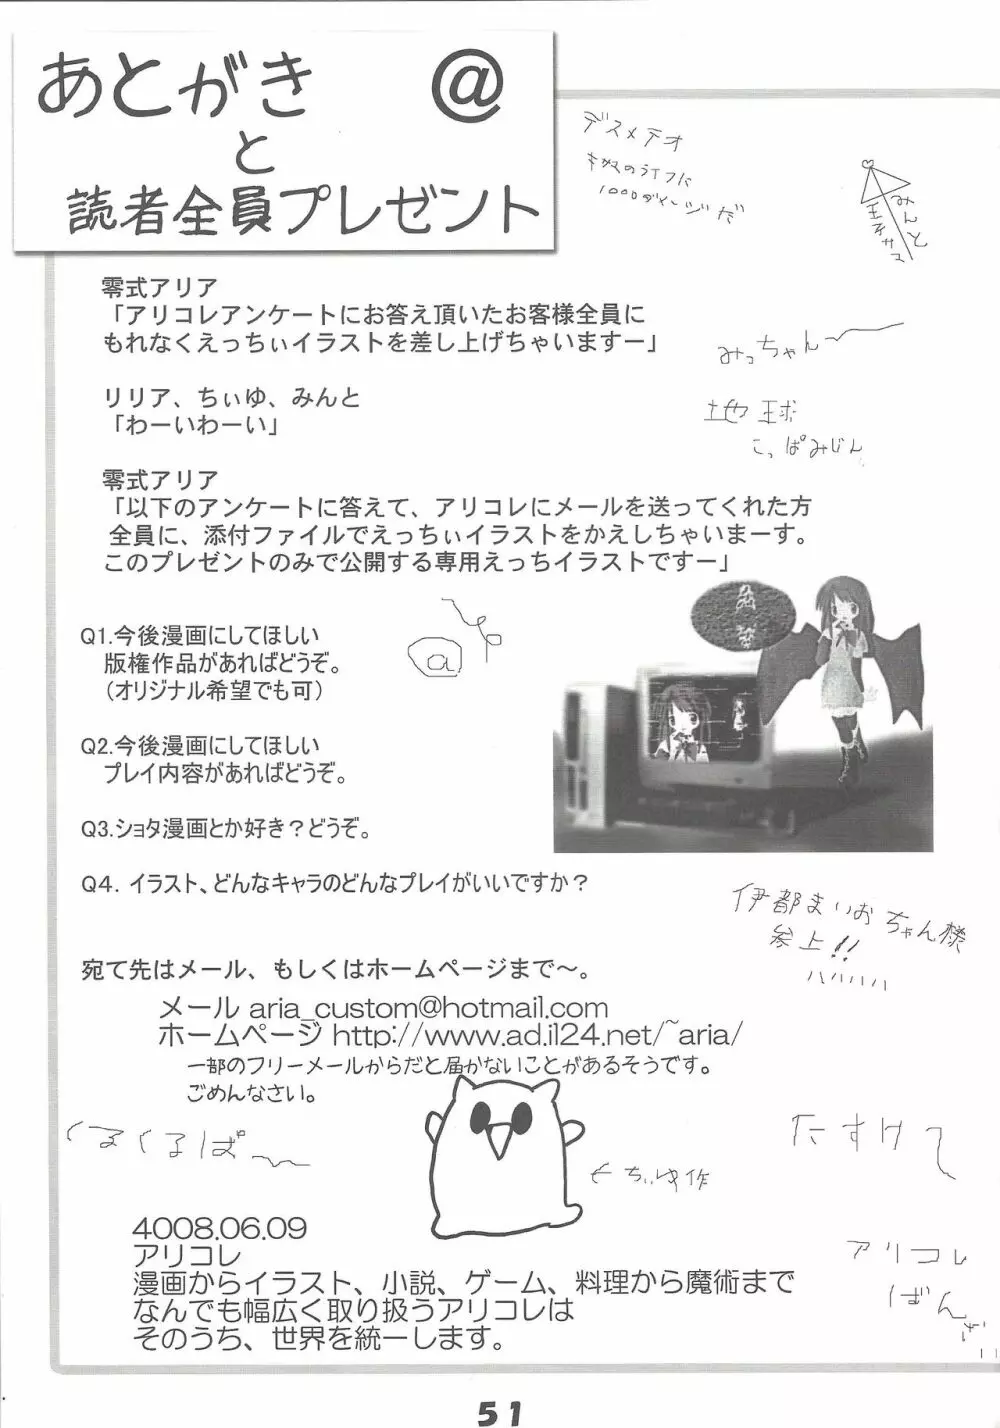 あとがき @
と
読者全員プレゼント
デスメテオ
1000ダメージだ
みんと
王子サマ
零式アリア
「アリコレアンケートにお答え頂いたお客様全員に
もれなくえっちぃイラストを差し上げちゃいますー」
みっちゃん〜
リリア、ちぃゆ、みんと
「わーいわーい」
地球
こっぱみじん
零式アリア
「以下のアンケートに答えて、アリコレにメールを送ってくれた方
全員に、添付ファイルでえっちぃイラストをかえしちゃいまーす。
このプレゼントのみで公開する専用えっちイラストですー」
Q1.今後漫画にしてほしい
版権作品があればどうぞ。
（オリジナル希望でも可）
@
Q2.今後漫画にしてほしい
プレイ内容があればどうぞ。
Q3.ショタ漫画とか好き？どうぞ。
Q4. イラスト、どんなキャラのどんなプレイがいいですか？
伊都まいおちゃん様
参上!!
ハハハハハ
宛て先はメール、もしくはホームページまで〜。
メール aria_custom@hotmail.com
ホームページ http://www.ad.il24.net/~aria/
一部のフリーメールからだと届かないことがあるそうです。
ごめんなさい。
くるくるぱ〜
←ちぃゆ作
たすけて
4008.06.09
アリコレ
漫画からイラスト、小説、ゲーム、料理から魔術まで
なんでも幅広く取り扱うアリコレは
そのうち、世界を統一します。
アリコレ
ばんざ
51